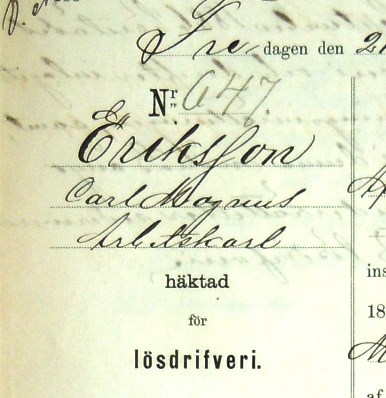 Fredagen den 21
Nr 647.
Eriksson
Carl Magnus
Arbetskarl
häktad
för
lösdrifveri.
ins
18
af